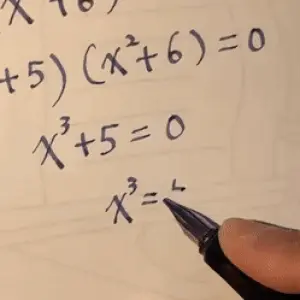 x + 6)
+ 5) (x² + 6) = 0
x³ + 5 = 0
x³ =